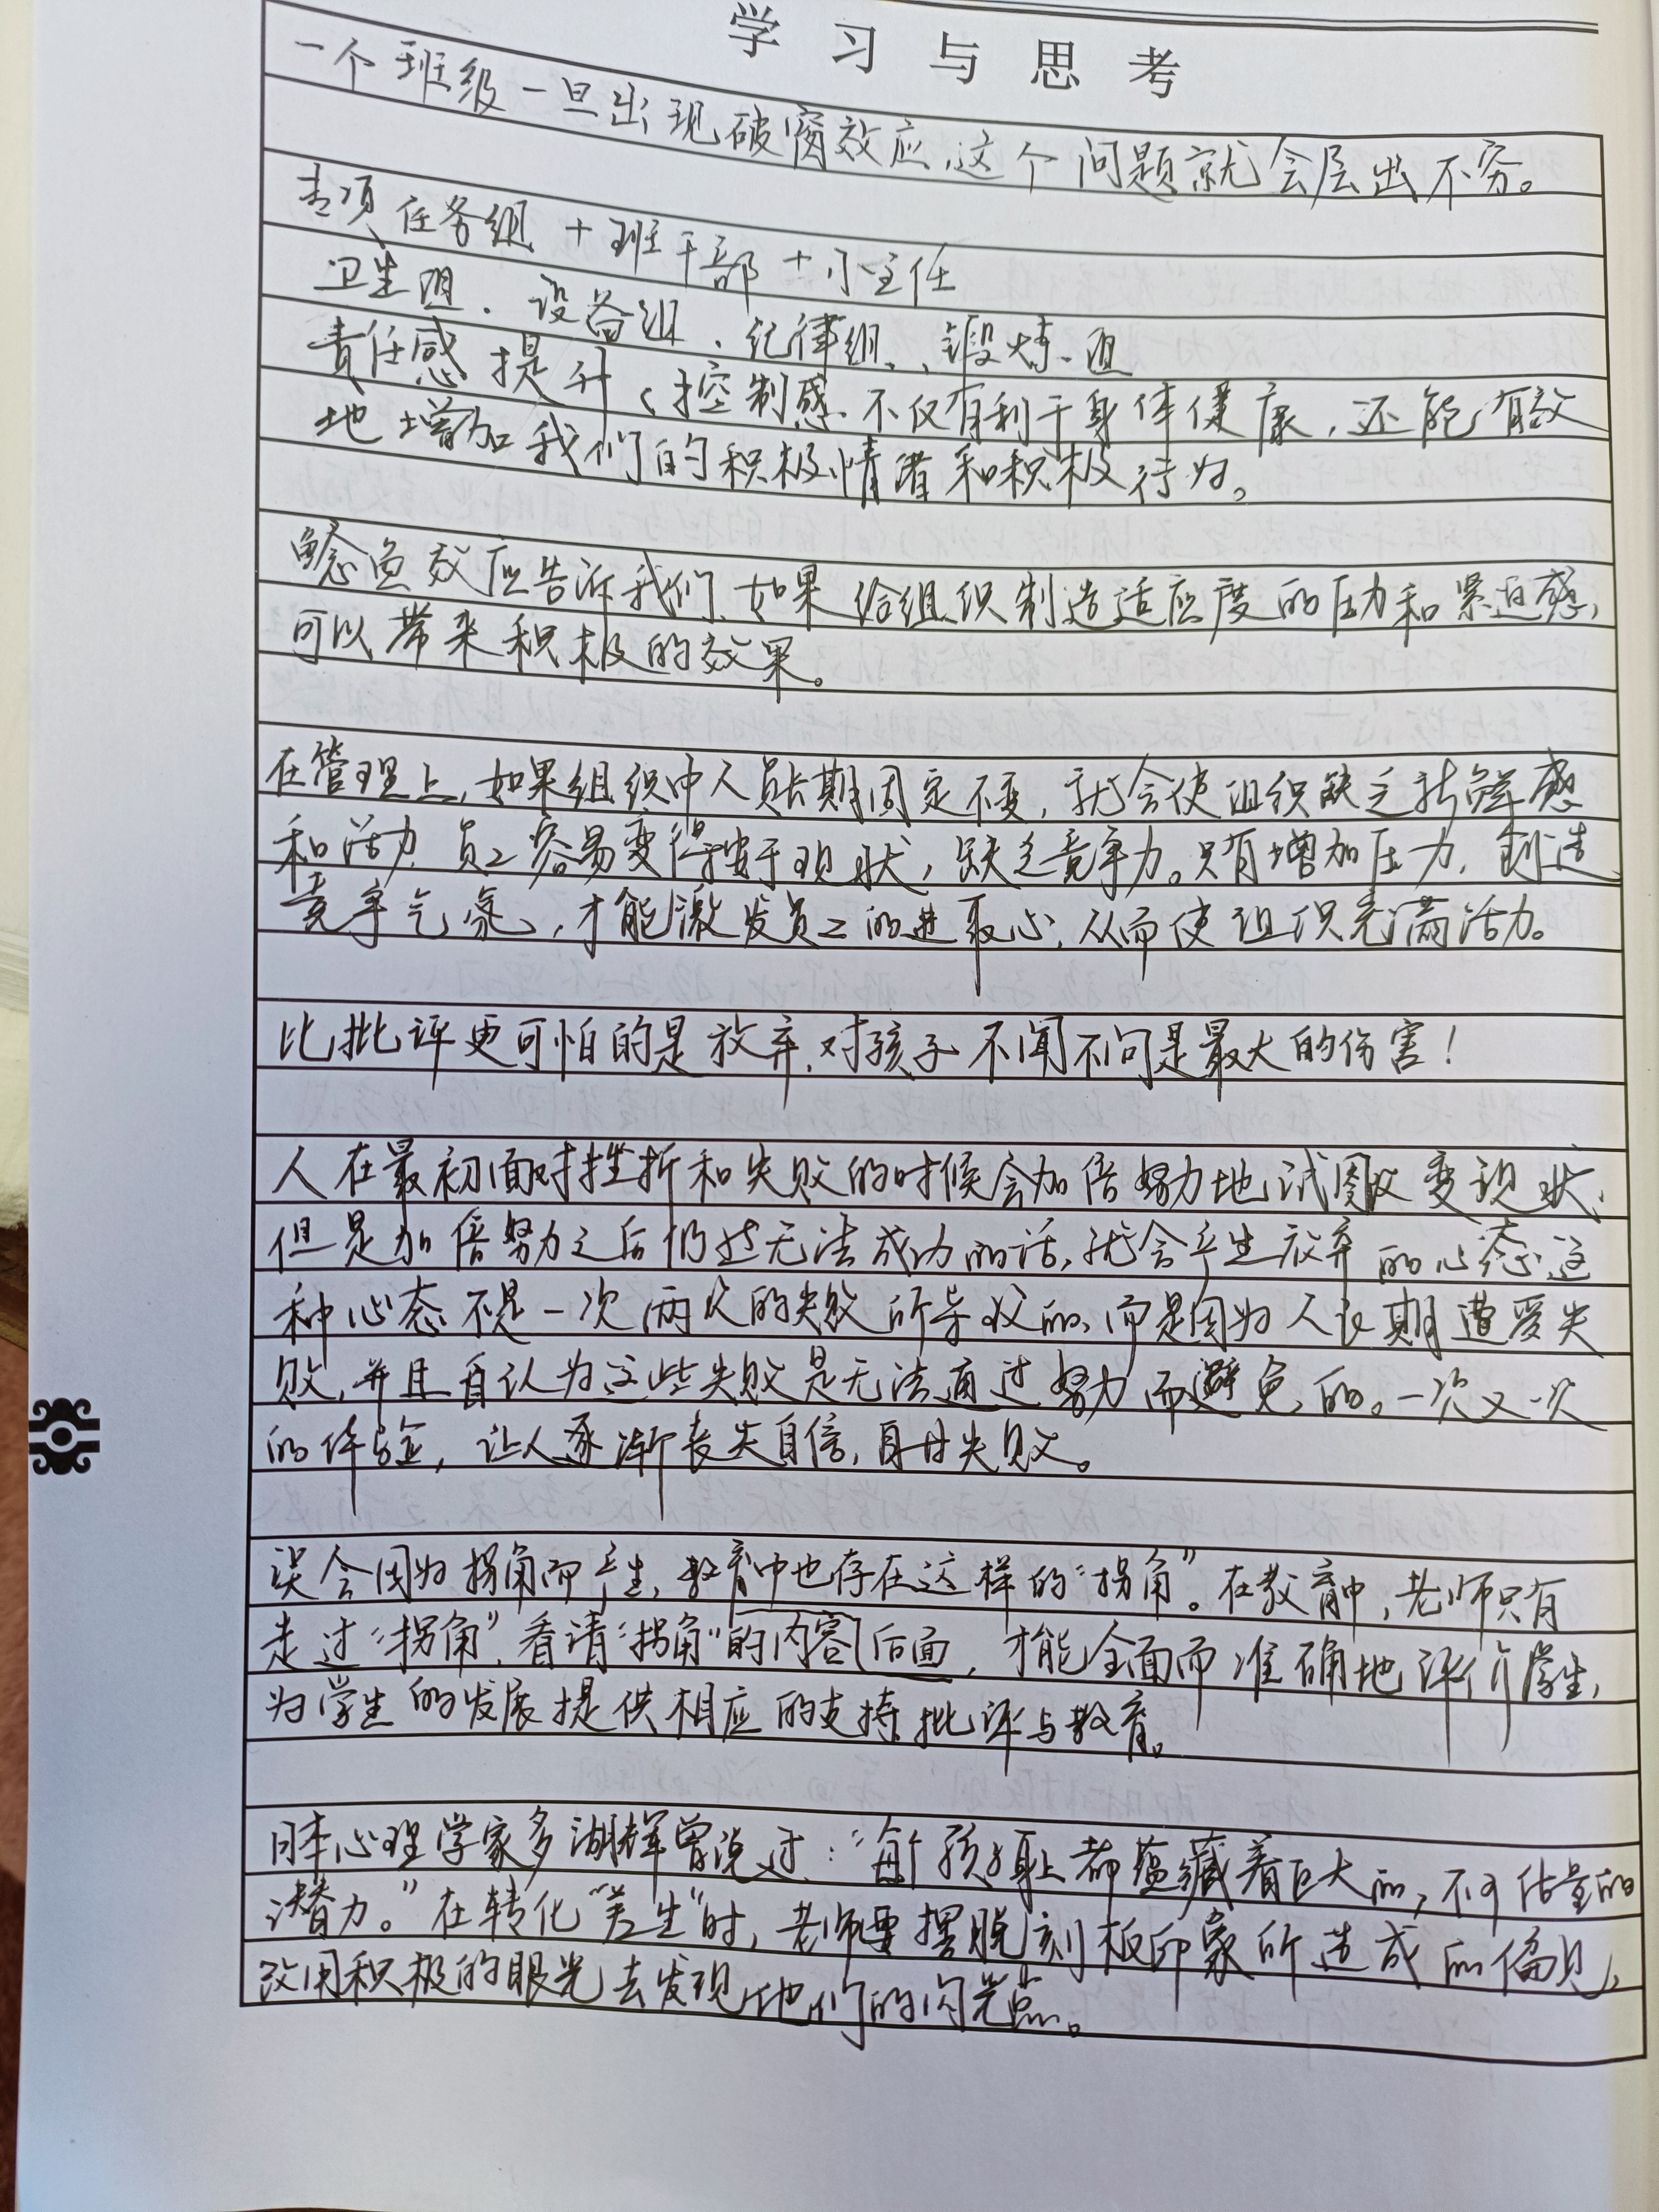 学习与思考
一个班级一旦出现破窗效应,这个问题就会层出不穷。
专项任务组+班干部+小主任
卫生组、设备组、纪律组、锻炼组
责任感提升、控制感不仅有利于身体健康,还能有效
地增加我们的积极情绪和积极行为。
鲶鱼效应告诉我们,如果给组织制造适应度的压力和紧迫感,
可以带来积极的效果。
在管理上,如果组织中人员长期固定不变,就会使组织缺乏新鲜感
和活力,员工容易变得按于现状,缺乏竞争力。只有增加压力,创造
竞争气氛,才能激发员工的进取心,从而使组织充满活力。
比批评更可怕的是放弃,对孩子不闻不问是最大的伤害!
人在最初面对挫折和失败的时候会加倍努力地试图改变现状,
但是加倍努力之后仍然无法成功的话,就会产生放弃的心态,这
种心态不是一次两次的失败所导致的,而是因为人长期遭受失
败,并且自认为这些失败是无法通过努力而避免的。一次又一次
的体验,让人逐渐丧失自信,自甘失败。
误会因为拐角而产生,教育中也存在这样的“拐角”。在教育中,老师只有
走过“拐角”,看清“拐角”的内容后面,才能全面而准确地评价学生,
为学生的发展提供相应的支持批评与教育。
日本心理学家多湖辉曾说过:“每个孩子身上都蕴藏着巨大的,不可估量的
潜力。”在转化“差生”时,老师要摆脱刻板印象所造成的偏见,
改用积极的眼光去发现他们的闪光点。